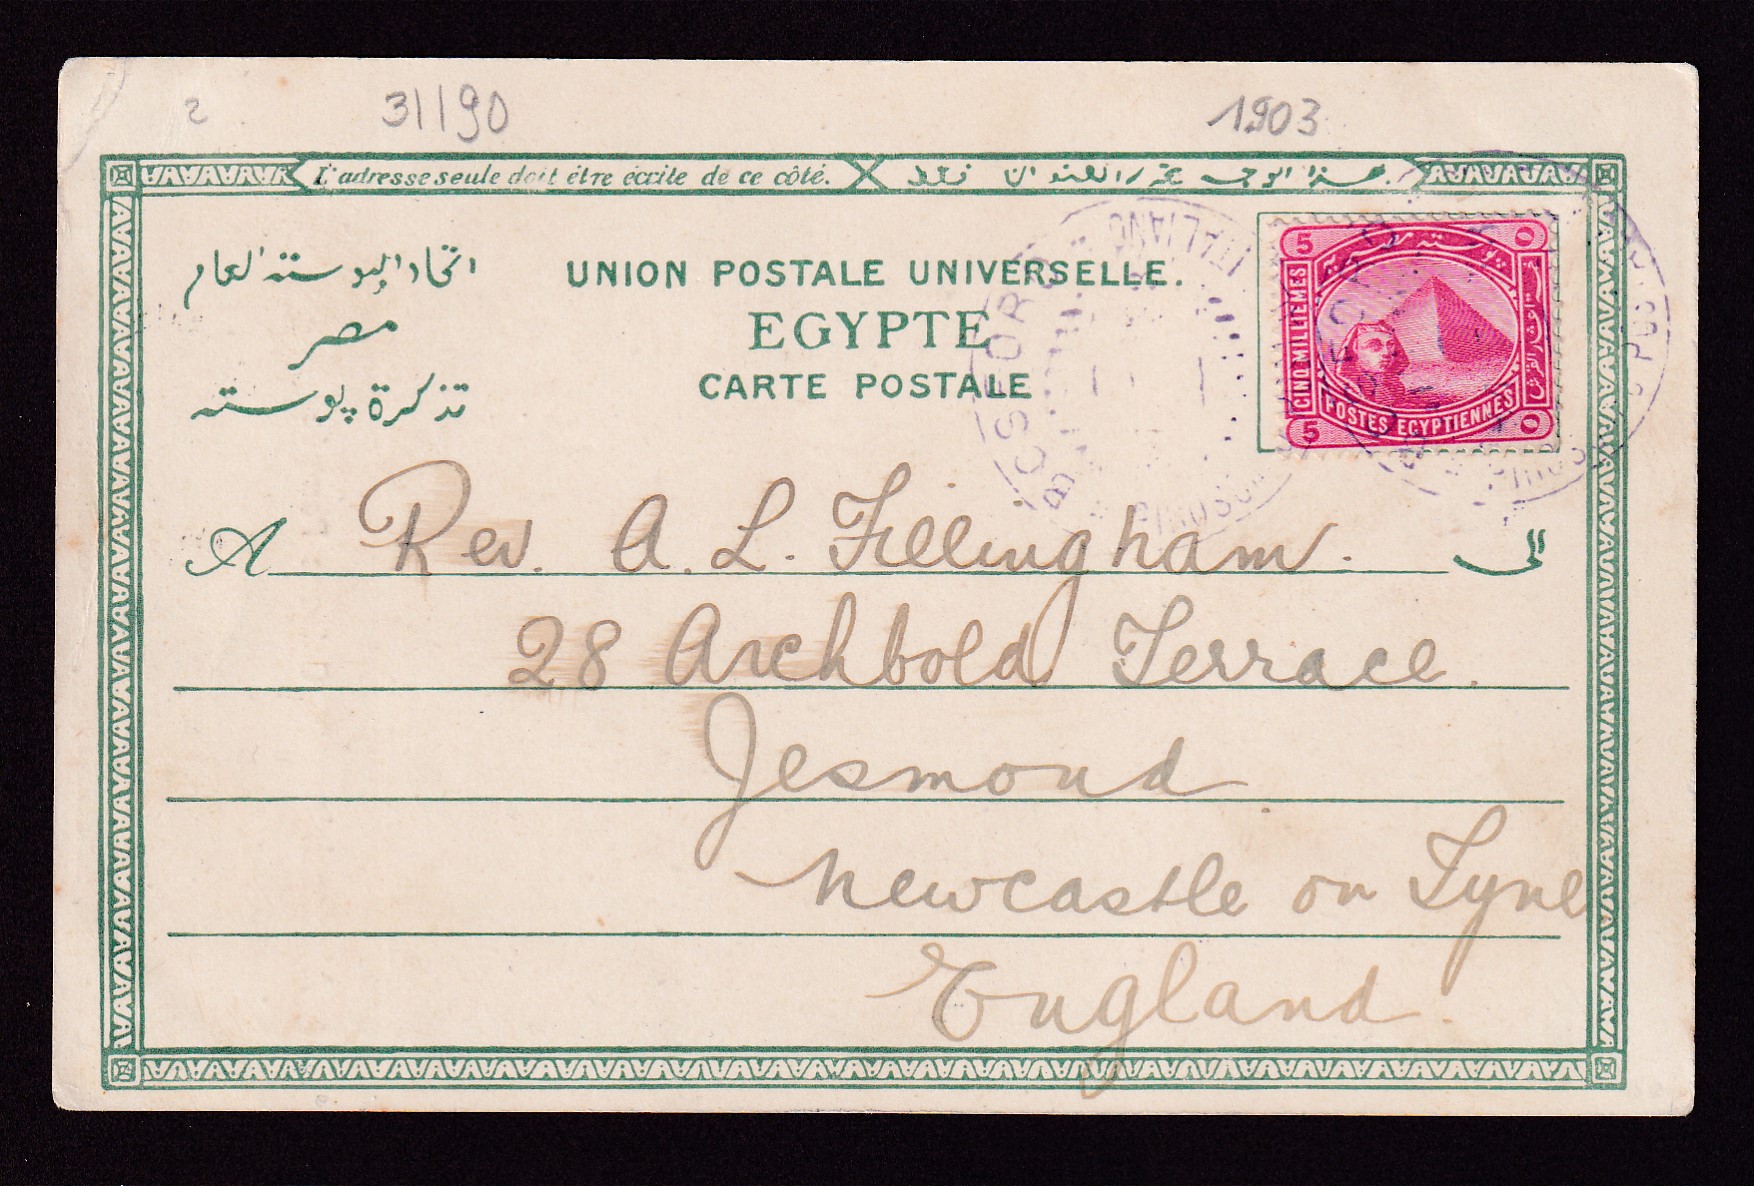 2 31190 1903
L'adresse seule doit être écrite de ce côté. هذا الوجه محرر العنوان فقط
اتحاد البوستة العام
مصر
تذكرة پوسته
UNION POSTALE UNIVERSELLE.
EGYPTE
CARTE POSTALE
5
CINQ MILLIEMES
POSTES EGYPTIENNES
5
ITALIANO
A Rev. A. L. Fillingham. الى
28 Archbold Terrace.
Jesmond
Newcastle on Tyne
England.